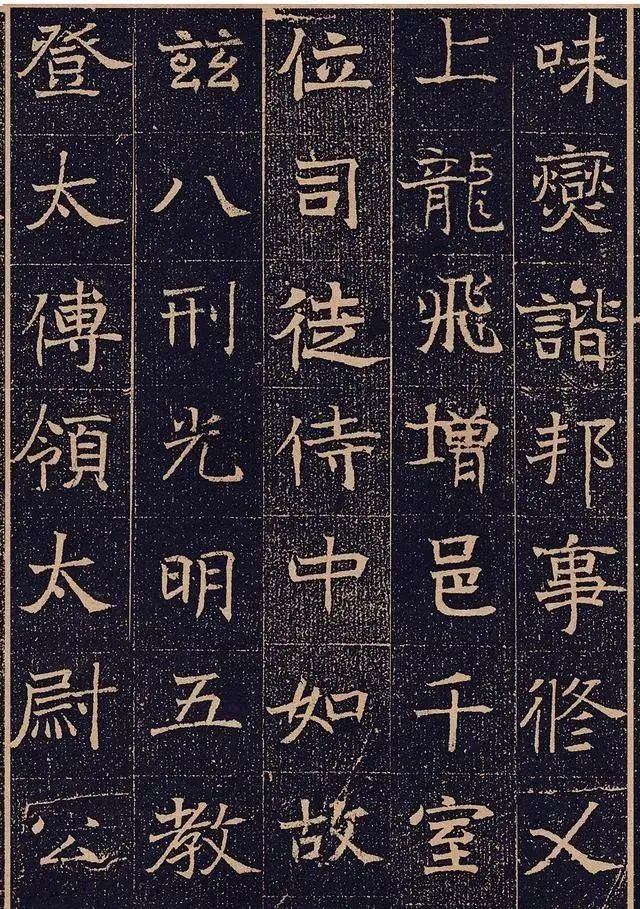 味燮諧邦事脩乂
上龍飛增邑千室
位司徒侍中如故
玆八刑光明五教
登太傅領太尉公